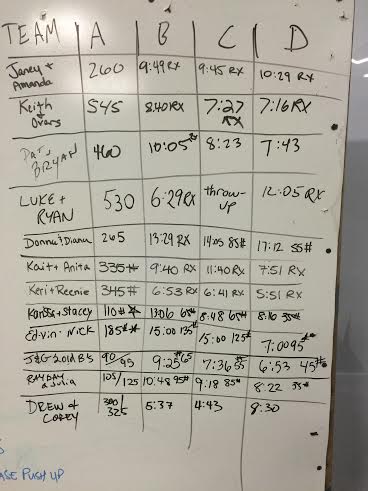 TEAM A B C D
Janey + Amanda 260 9:49 RX 9:45 RX 10:29 RX
Keith + Ovars 545 8:40 RX 7:27 RX 7:16 RX
Pat + BRYAN 460 10:05 RX 8:23 7:43
LUKE + RYAN 530 6:29 RX throw-up 12:05 RX
Donna + Diana 265 13:29 RX 14:05 85# 17:12 55#
Kait + Anita 335# 9:40 RX 11:40 RX 7:51 RX
Keri + Reenie 345# 6:53 RX 6:41 RX 5:51 RX
+ Stacey 110# 1306 65# 8:48 65# 8:16 35#
Edvin - Nick 185# 15:00 135# 15:00 125# 7:00 95#
90/95 9:25 #65 7:36 55 6:53 45#
RAYDAY & Julia 105/125 10:48 95# 9:18 85# 8:22 35#
DREW & COREY 300/325 5:37 4:43 8:30
ASE PUSH UP